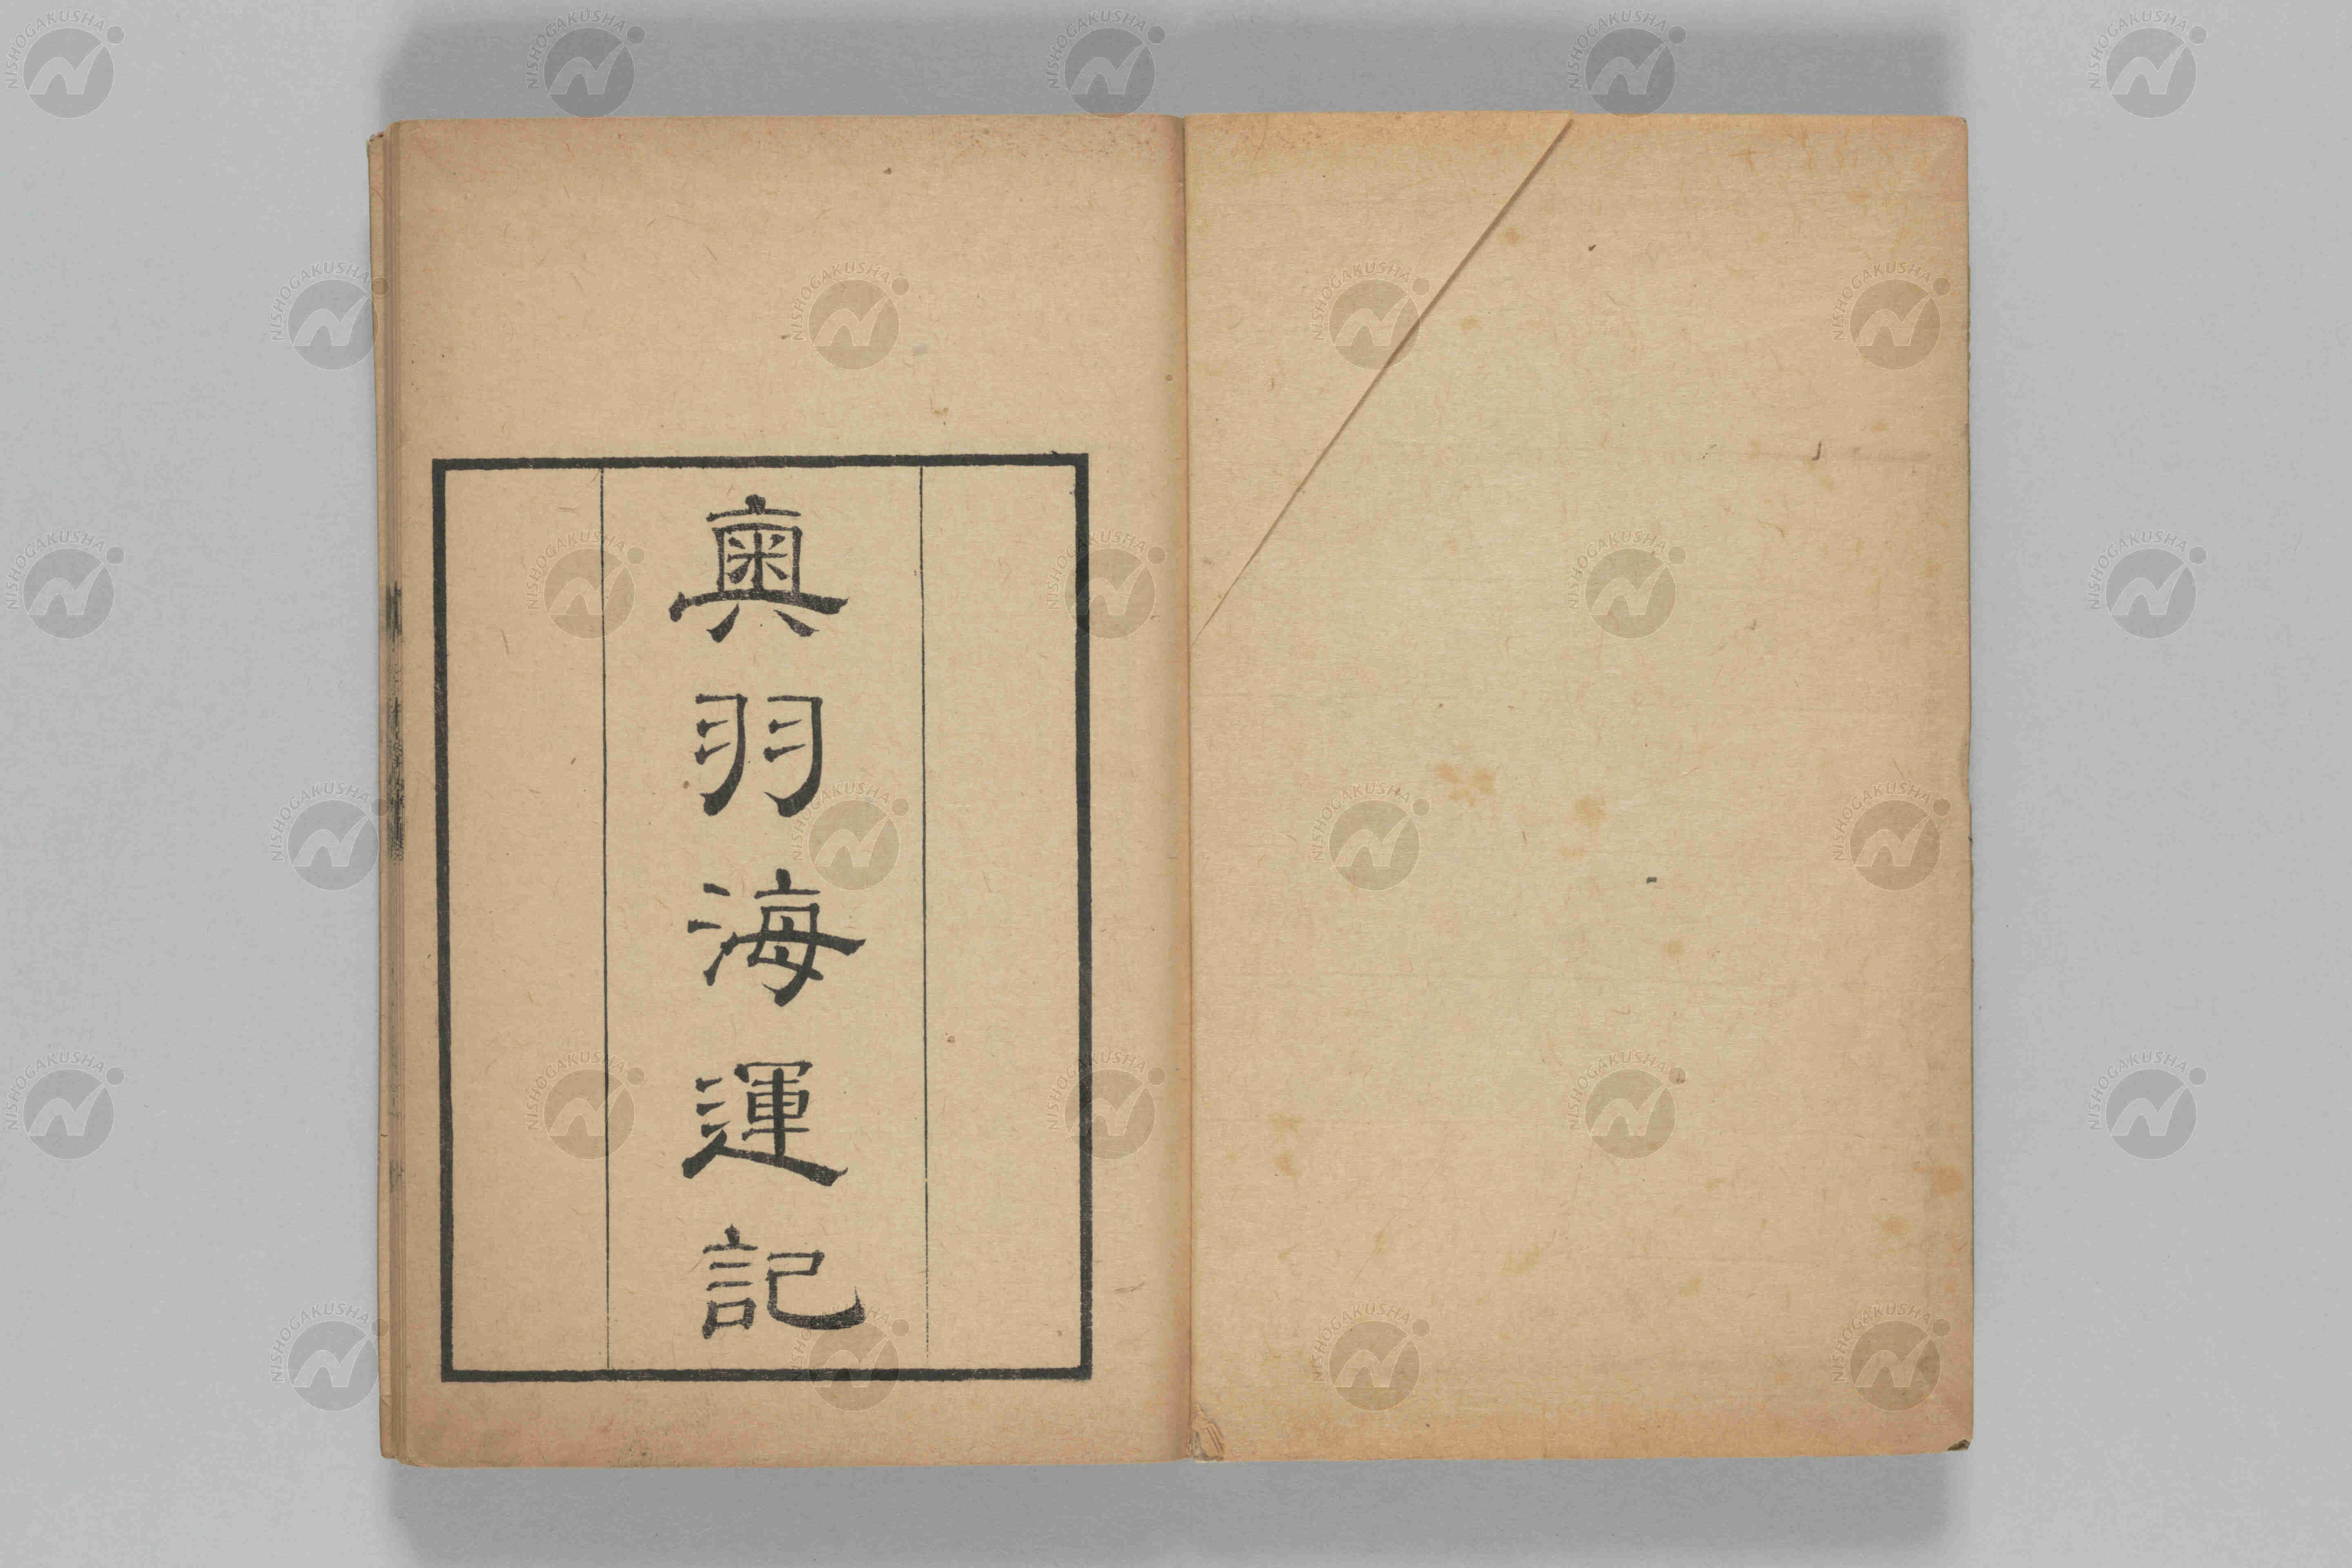 奧羽海運記
NISHOGAKUSHA